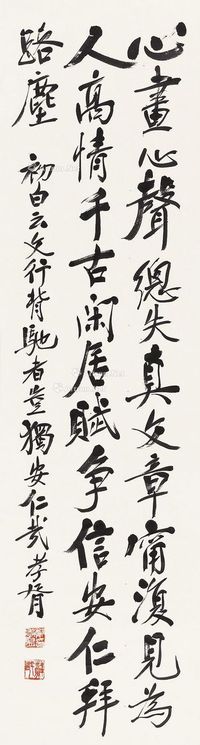 心畫心聲總失真文章甯復見為
人高情千古閑居賦爭信安仁拜
路塵
初白云文行背馳者豈獨安仁哉孝胥